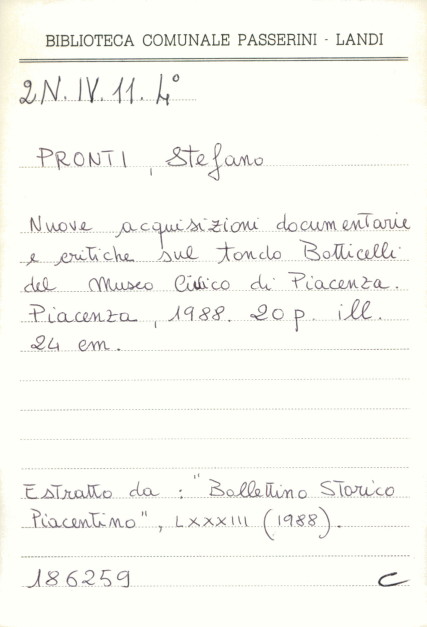 BIBLIOTECA COMUNALE PASSERINI - LANDI
2N.IV.11.4°
PRONTI, Stefano
Nuove acquisizioni documentarie
e critiche sul tondo Botticelli
del Museo Civico di Piacenza.
Piacenza, 1988. 20 p. ill.
24 cm.
Estratto da: "Bollettino Storico
Piacentino", LXXXIII (1988).
186259 C